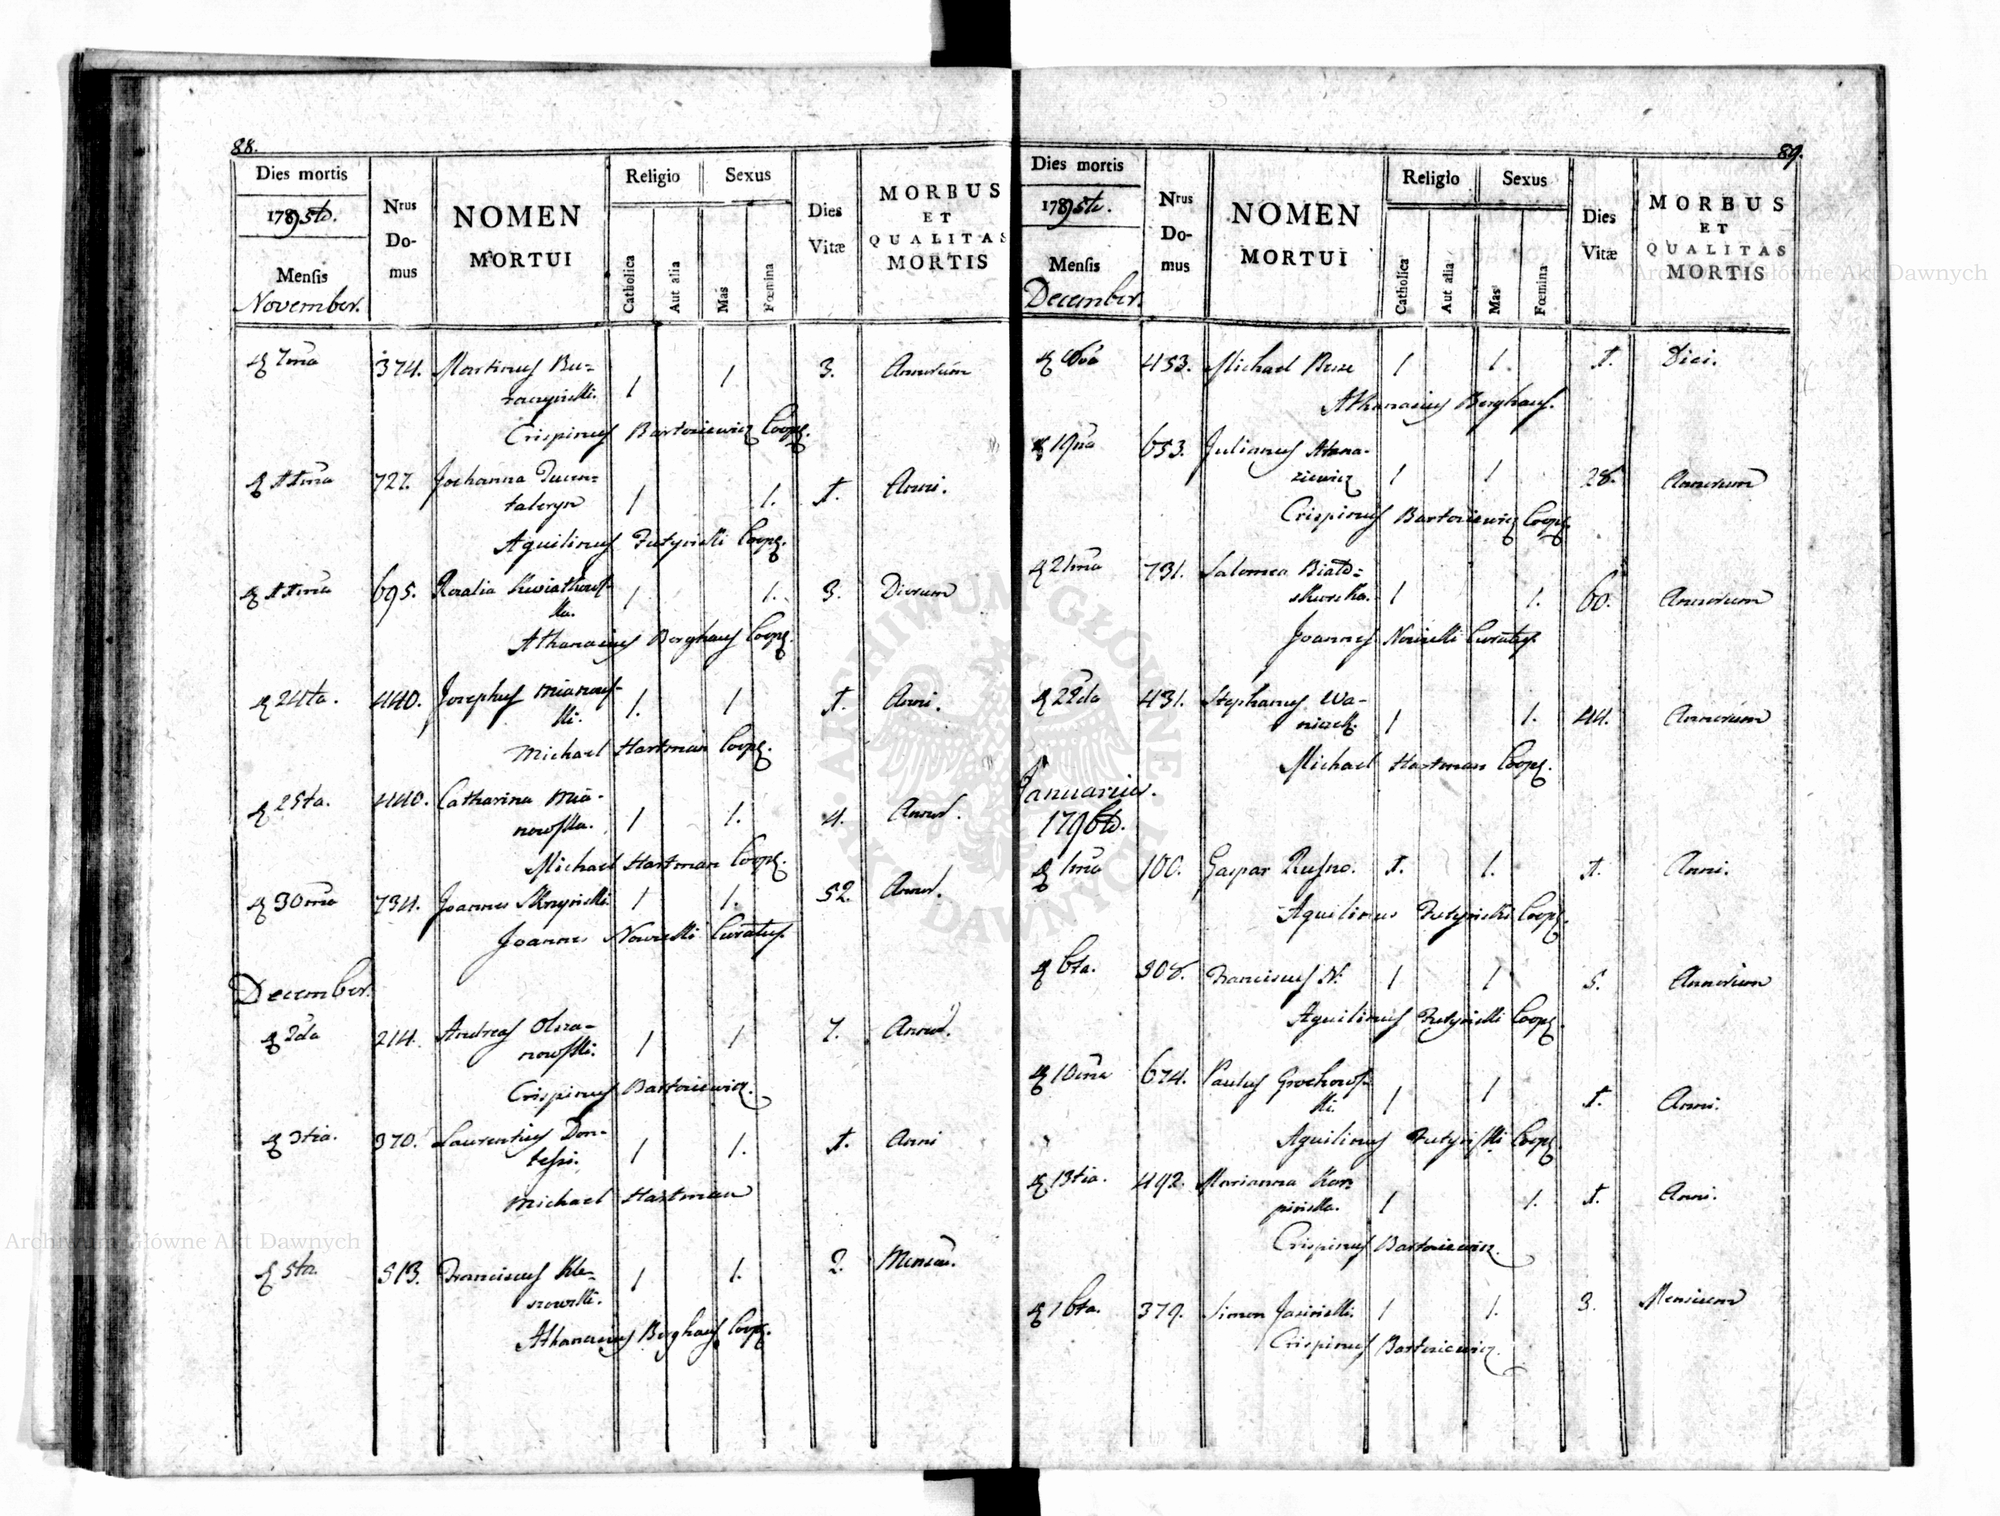 88.
Dies mortis
1795to.
Mensis
November.
Nrus Domus
NOMEN MORTUI
Religio
Catholica
Aut alia
Sexus
Mas
Fœmina
Dies Vitæ
MORBUS ET QUALITAS MORTIS
7ma 374. Martinus Bu=
1 1 3. Annorum
Crispinus Bartosiewicz Coop.
11ma 727. Johanna
1 1. 1. Anni.
Aquilinus Coop.
11ma 695. Rosalia Kwiatkows=
ka. 1 1. 3. Dierum
Athanasius Berghaus Coop.
24ta. 440. Josephus Mianows=
ki. 1. 1 1. Anni.
Michael Hartman Coop.
25ta. 440. Catharina Mia=
nowska. 1 1. 4. Annor.
Michael Hartman Coop.
30ma 734. Joannes 1 1. 52. Annor.
Joannes Nowicki Curatus.
December.
2da 214. Andreas
nowski. 1 1 7. Annor.
Crispinus Bartosiewicz.
3tia. 370. Laurentius
1 1. 1. Anni
Michael Hartman
5ta 513. Franciscus Kle=
1 1. 2. Mensiu.
Athanasius Berghaus Coop.
89.
Dies mortis
1795to.
Mensis
December.
Nrus Domus
NOMEN MORTUI
Religio
Catholica
Aut alia
Sexus
Mas
Fœmina
Dies Vitæ
MORBUS ET QUALITAS MORTIS
453. Michael 1 1. 1. Diei.
Athanasius Berghaus.
19na 653. Julianus
1 1 28. Annorum
Crispinus Bartosiewicz Coop.
21ma 731. Salomea
1 1. 60. Annorum
Joannes Nowicki Curatus.
22da 431. Stephanus Wa=
1 1. 44. Annorum
Michael Hartman Coop.
Januarius.
1796to.
1ma 100. Gaspar 1. 1. 1. Anni.
Aquilinus Coop.
6ta. 308. Franciscus N. 1 1 5. Annorum
Aquilinus Coop.
10ma 674. Paulus Grochows=
ki. 1 1 1. Anni.
Aquilinus Coop.
13tia. 492. Marianna Kar=
pinska. 1 1. 1. Anni.
Crispinus Bartosiewicz.
16ta. 379. Simon Jasinski. 1 1. 3. Mensium
Crispinus Bartosiewicz.
ARCHIWUM GŁÓWNE AKT DAWNYCH
Archiwum Główne Akt Dawnych
Archiwum Główne Akt Dawnych